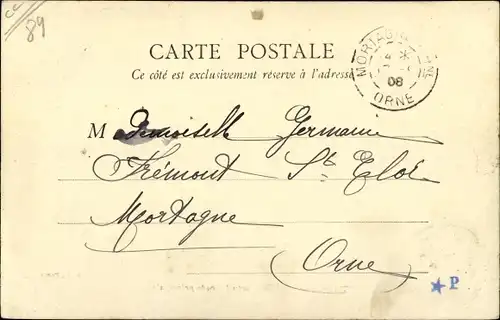 89
CARTE POSTALE
Ce côté est exclusivement réservé à l'adresse
MORTAGNE
08
ORNE
Mademoiselle Germaine
Frémont St Eloi
Mortagne
(Orne
★ P